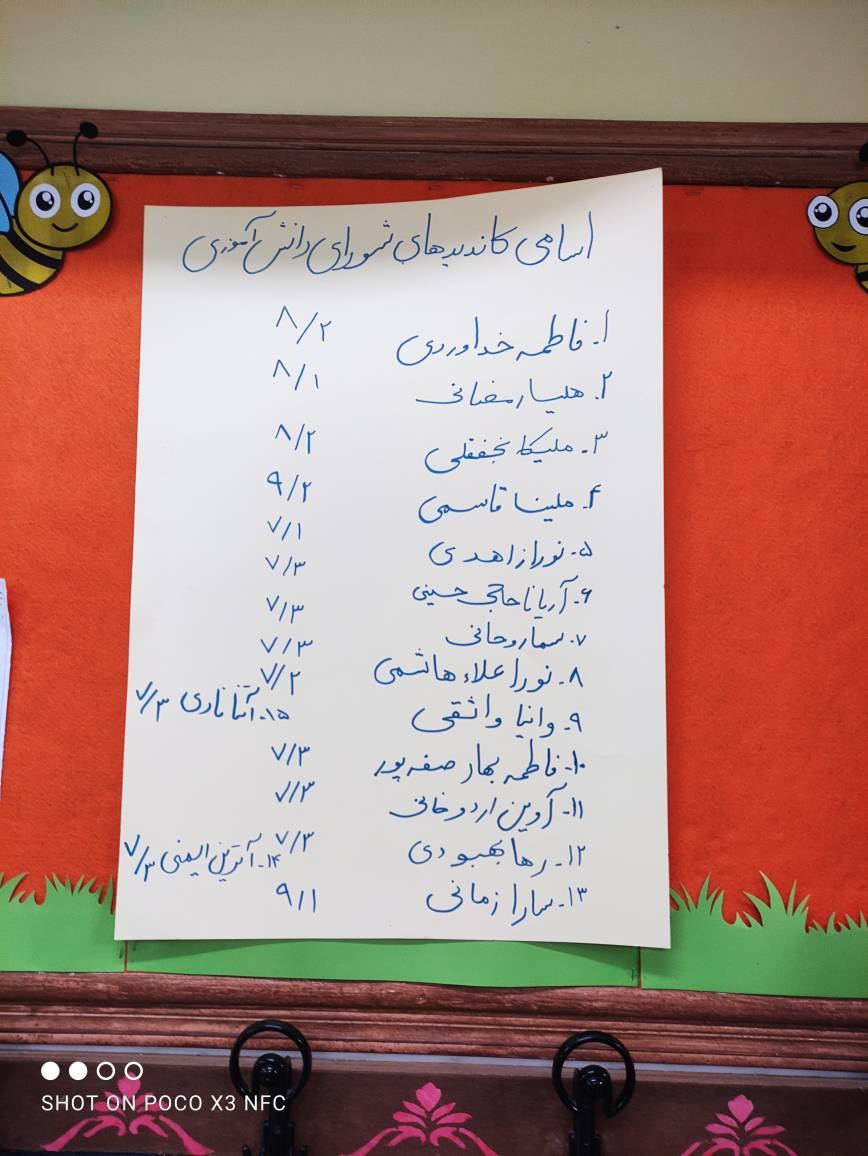 اسامی کاندیدهای شورای دانش آموزی
۱. فاطمه خداوردی ۸/۲
۲. هلیا رمضانی ۸/۱
۳. ملیکا نجفقلی ۸/۲
۴. ملینا قاسمی ۹/۲
۵. نورا زاهدی ۷/۱
۶. آریانا حاجی حسینی ۷/۳
۷. سما روحانی ۷/۳
۸. نورا علاء هاشمی ۷/۳
۹. وانیا واثقی ۷/۲
۱۰. فاطمه بهار صفرپور ۷/۳
۱۱. آوین اردوخانی ۷/۳
۱۲. رها بهبودی ۷/۳
۱۳. سارا زمانی ۹/۱
۱۴. آترین ایمنی ۷/۳
۱۵. آتنا نادی ۷/۳
SHOT ON POCO X3 NFC